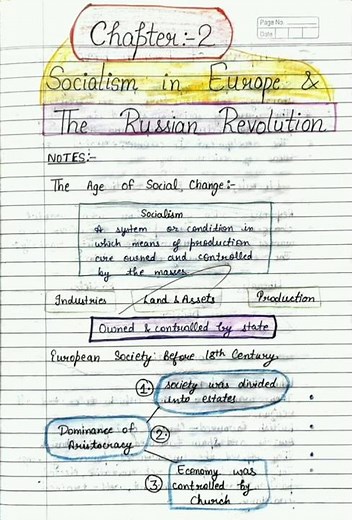 Page No
Date
Chapter:-2
Socialism in Europe &
The Russian Revolution
NOTES:-
The Age of Social Change:-
Socialism
A system or condition in
which means of production
are owned and controlled
by the masses
Industries
Land & Assets
Production
Owned & controlled by state
European Society Before 18th Century
1:- society was divided
into estates
Dominance of
Aristocracy
2:-
3 Economy was
controlled by
Church